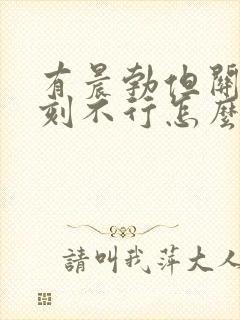 有晨勃但關
刻不行怎麼
請叫我萍大人